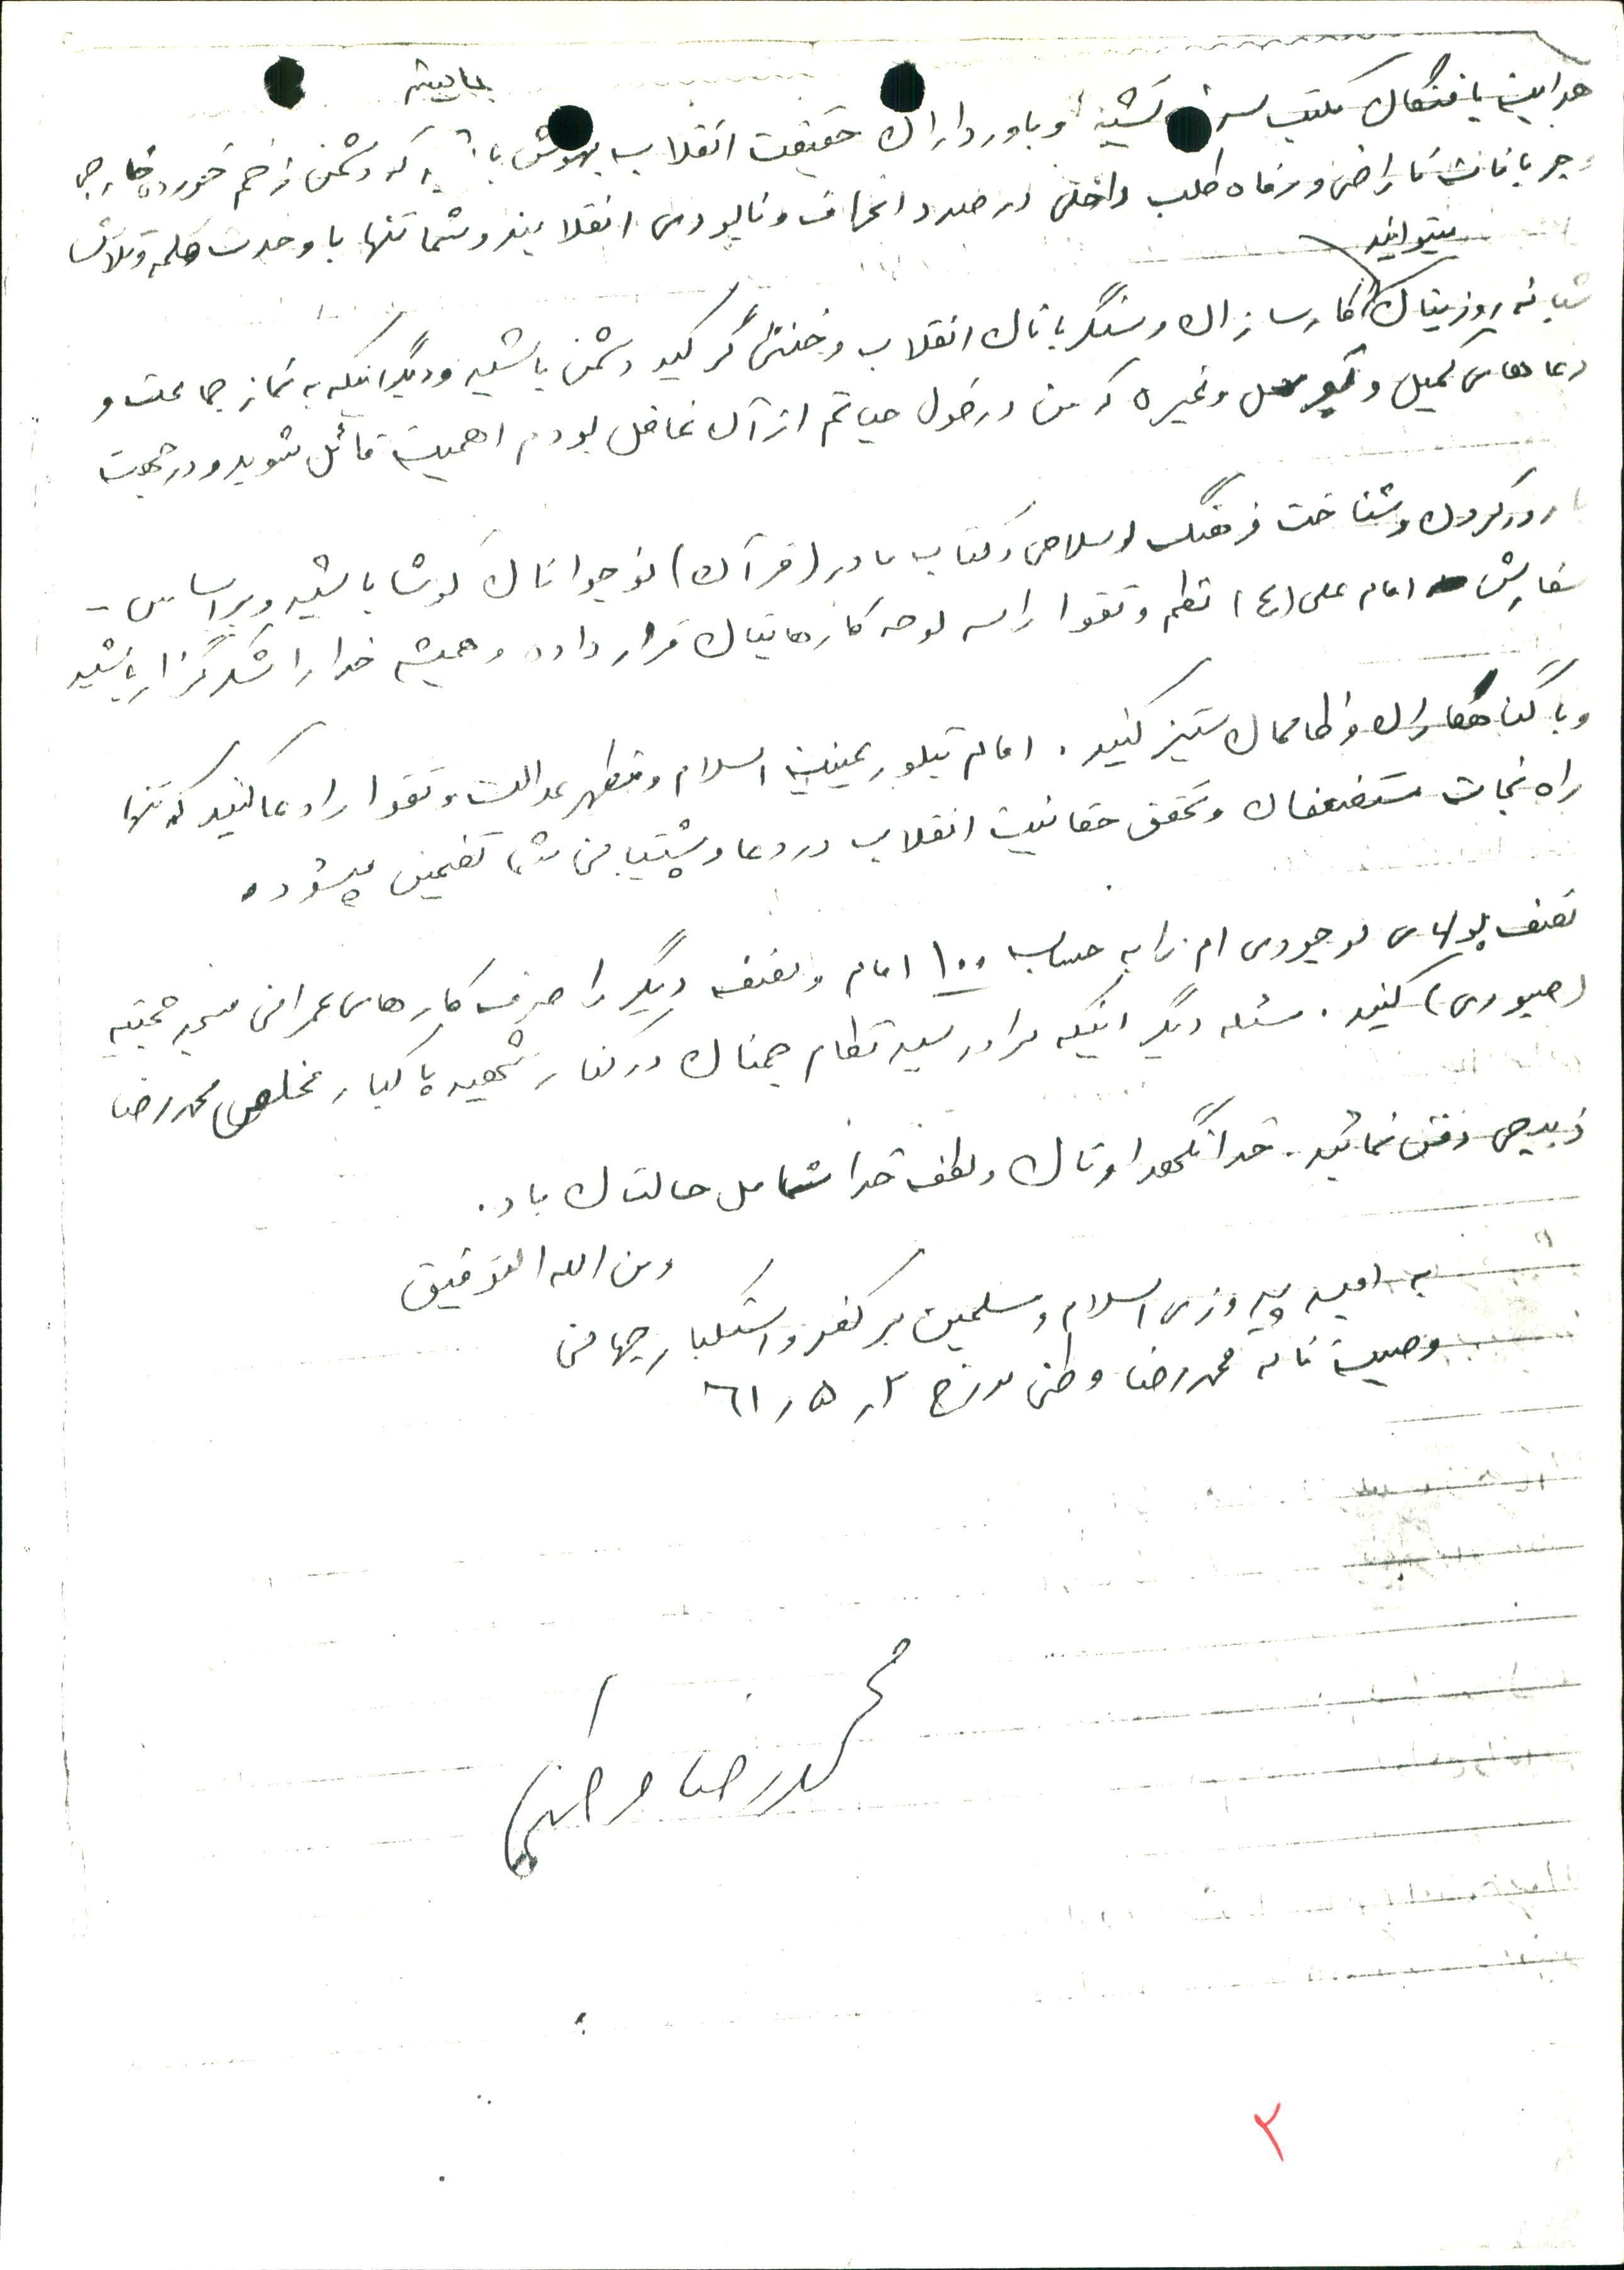 بماییند
هدایت یافتگان مکتب سرخ تشیع و باورداران حقیقت انقلاب بهوش باشید که دشمن زخم خورده خارجی
و جریانات ناراضی و رفاه طلب داخلی در صدد انحراف و نابودی انقلابیند و شما تنها با وحدت کلمه و تلاش
میتوانید
شبانه روزیتان کارسازان و سنگربانان انقلاب و خنثی گر کید دشمن باشید و دیگر اینکه به نماز جماعت و
دعاهای کمیل و توسل و غیره که من در طول حیاتم از آن غافل بودم اهمیت قائل شوید و در جهت
بارور کردن و شناخت فرهنگ اسلامی و کتاب مادر (قرآن) نوجوانان کوشا باشید و بر اساس -
سفارش امام علی (ع) نظم و تقوا را سر لوحه کارهایتان قرار داده و همیشه خدا را شکر گزار باشید
و با گناهکاران و ظالمان ستیز کنید. امام تبلور عینیت اسلام و مظهر عدالت و تقوا را دعا کنید که تنها
راه نجات مستضعفان و تحقق حقانیت انقلاب در دعا و پشتیبانی شما تضمین میشود.
نصف پولهای موجودی ام را به حساب ۱۰۰ امام و نصف دیگر را صرف کارهای عمرانی مسجد حجتیه
(صبوری) کنید. مسئله دیگر اینکه مرا در سید نظام جهنان در کنار شهید پاکباز مخلص محمدرضا
ذبیحی دفن نمائید. خدا نگهدارتان و لطف خدا شامل حالتان باد.
و من الله التوفیق
به امید پیروزی اسلام و مسلمین بر کفر و استکبار جهانی
وصیت نامه محمدرضا وطنی مورخ ۲ر۵ر۶۱
محمدرضا وطنی
۲